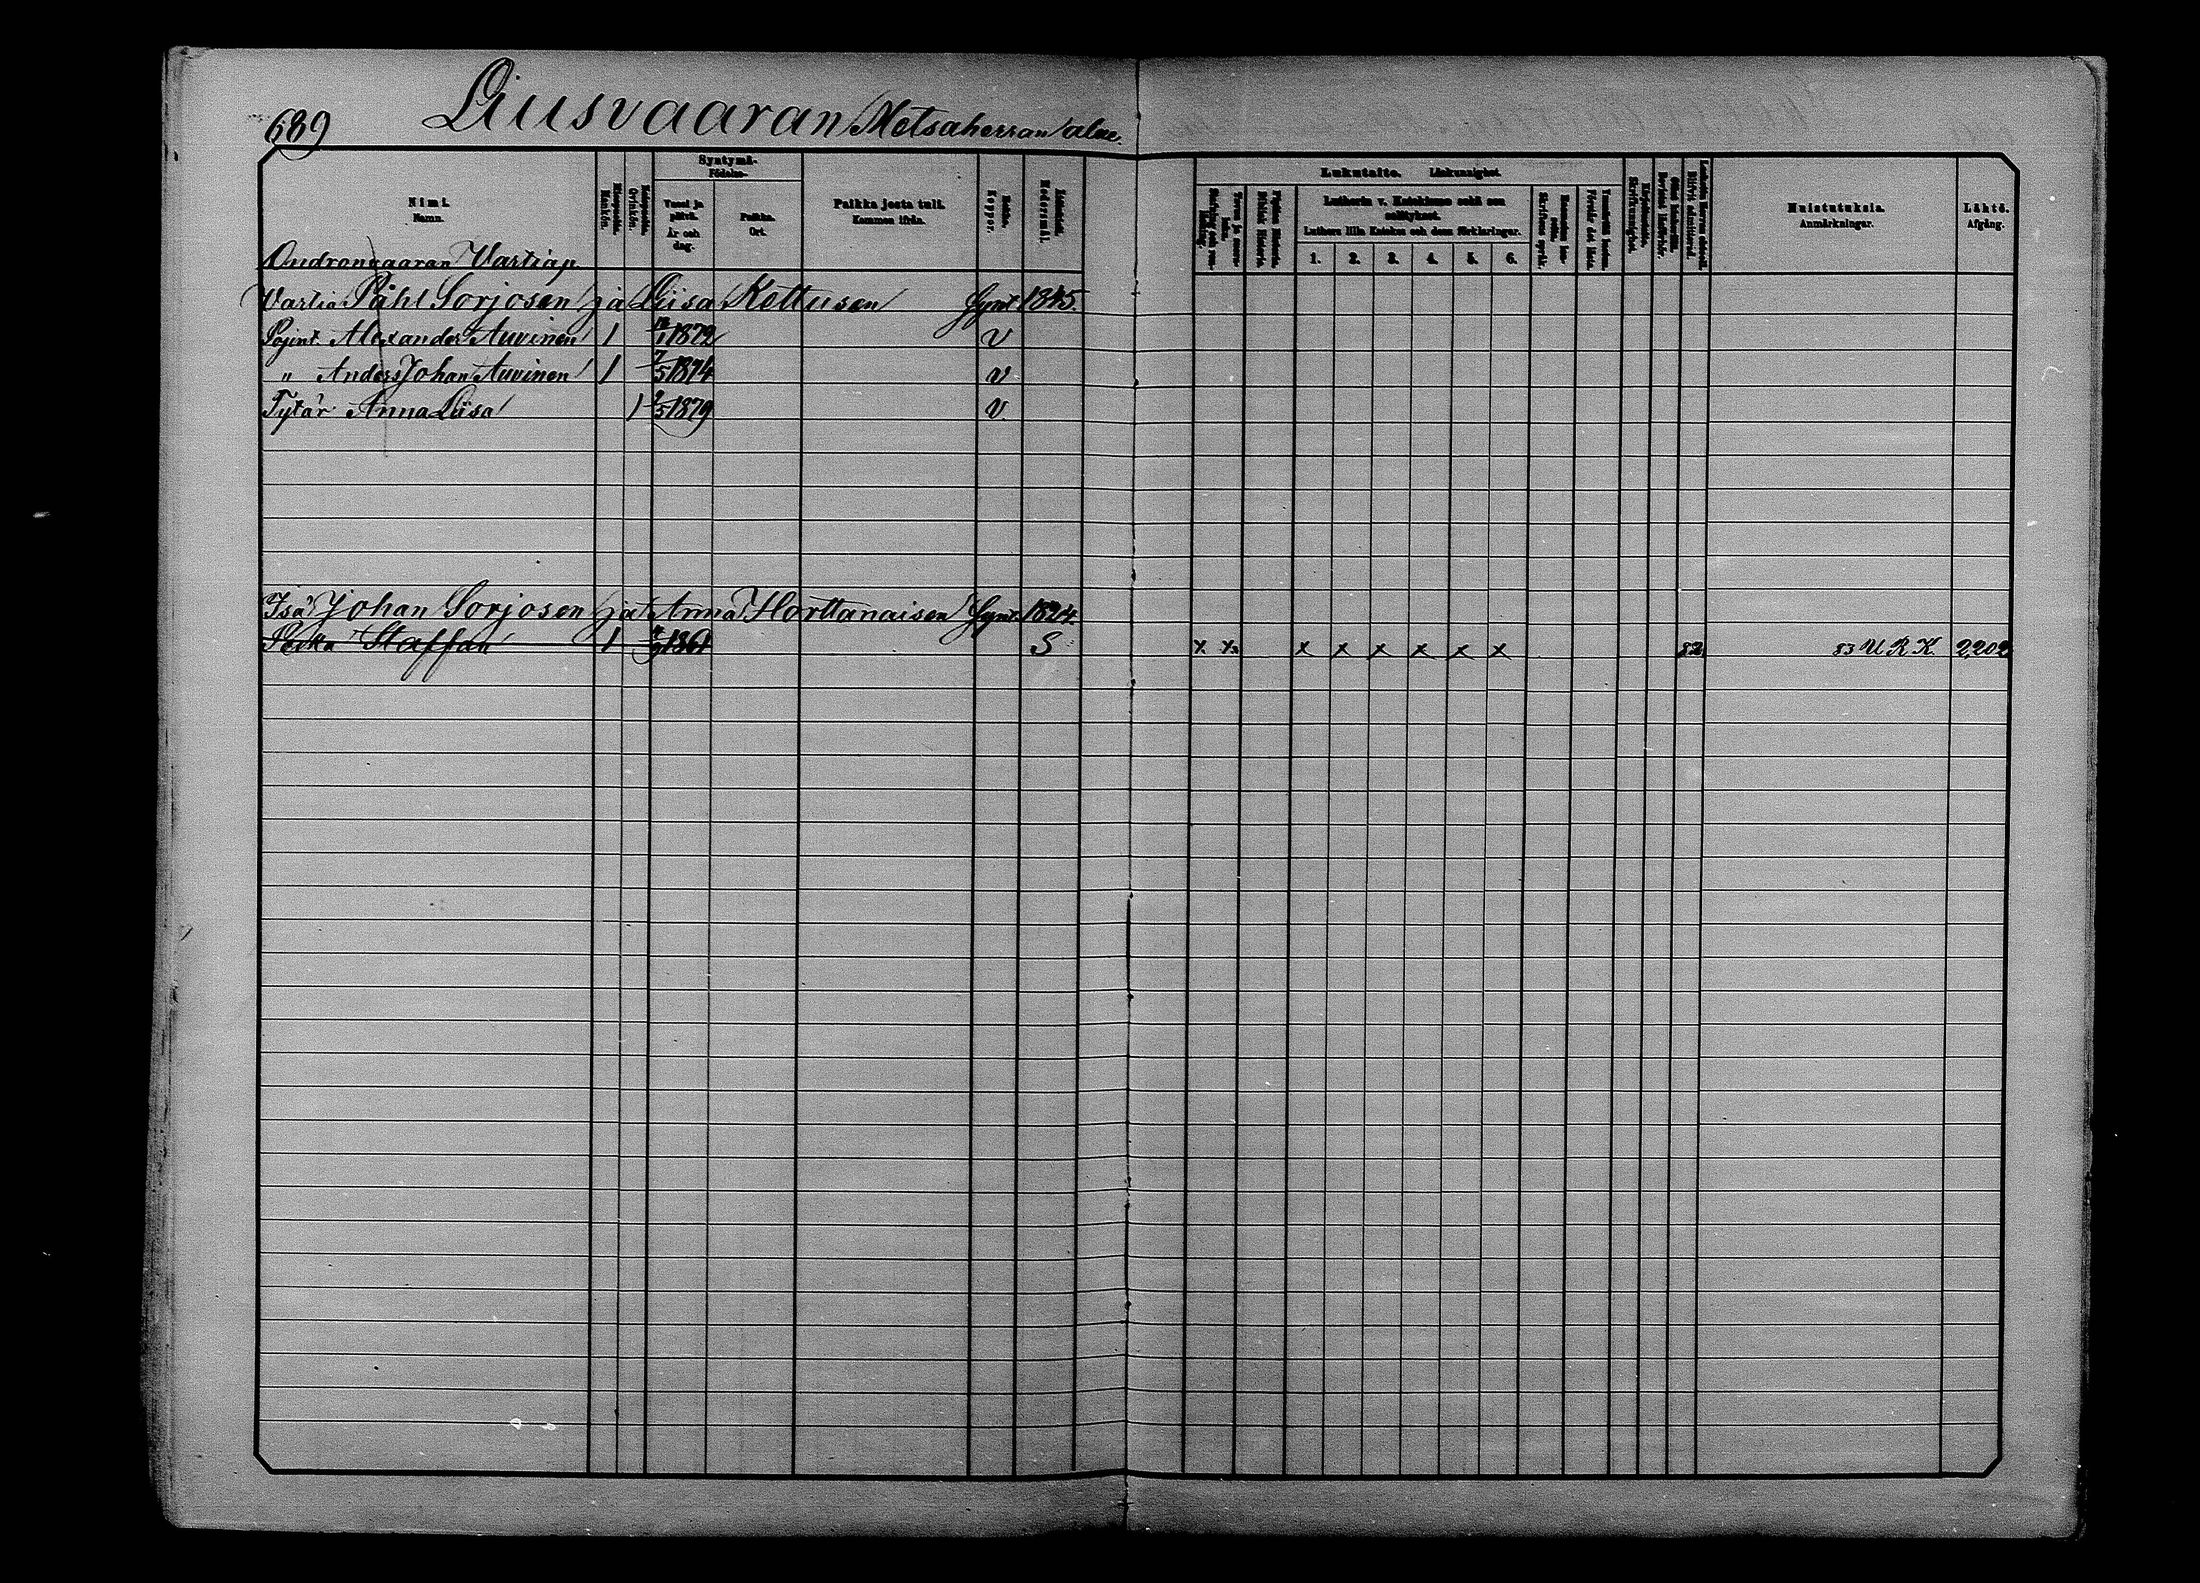 689 Liusvaaran Metsaherran alue.
Syntymä-
Födelse-
Nimi.
Namn.
Miespuolia.
Mankön.
Vaimopuolia.
Qvinkön.
Vuosi ja päivä.
År och dag.
Paikka.
Ort.
Paikka josta tuli.
Kommen ifrån.
Rokko.
Koppor.
Modersmål.
Lukutaito. Läskunnighet.
Lutherin v. Katekismo sekä sen selitykset.
Luthers lilla Katekes och dess förklaringar.
1. 2. 3. 4. 5. 6.
Skriftens språk.
Förstår det lästa.
Skrifkunnighet.
Muistutuksia.
Anmärkningar.
Lähtö.
Afgång.
Vartiap.
Vartia Påhl Sorjosen ja Liisa Kettusen Synt. 1845.
Pojint. Alexander Auvinen 1 1872 v
" Anders Johan Auvinen 1 7/5 1874 v
Tytär Anna Liisa 1 1879 v
Isä Johan Sorjosen ja Anna Horttanaisen Synt. 1824.
Poika Staffan 1 1861 S x x x x x x x x 82 83 U R K. 2,202